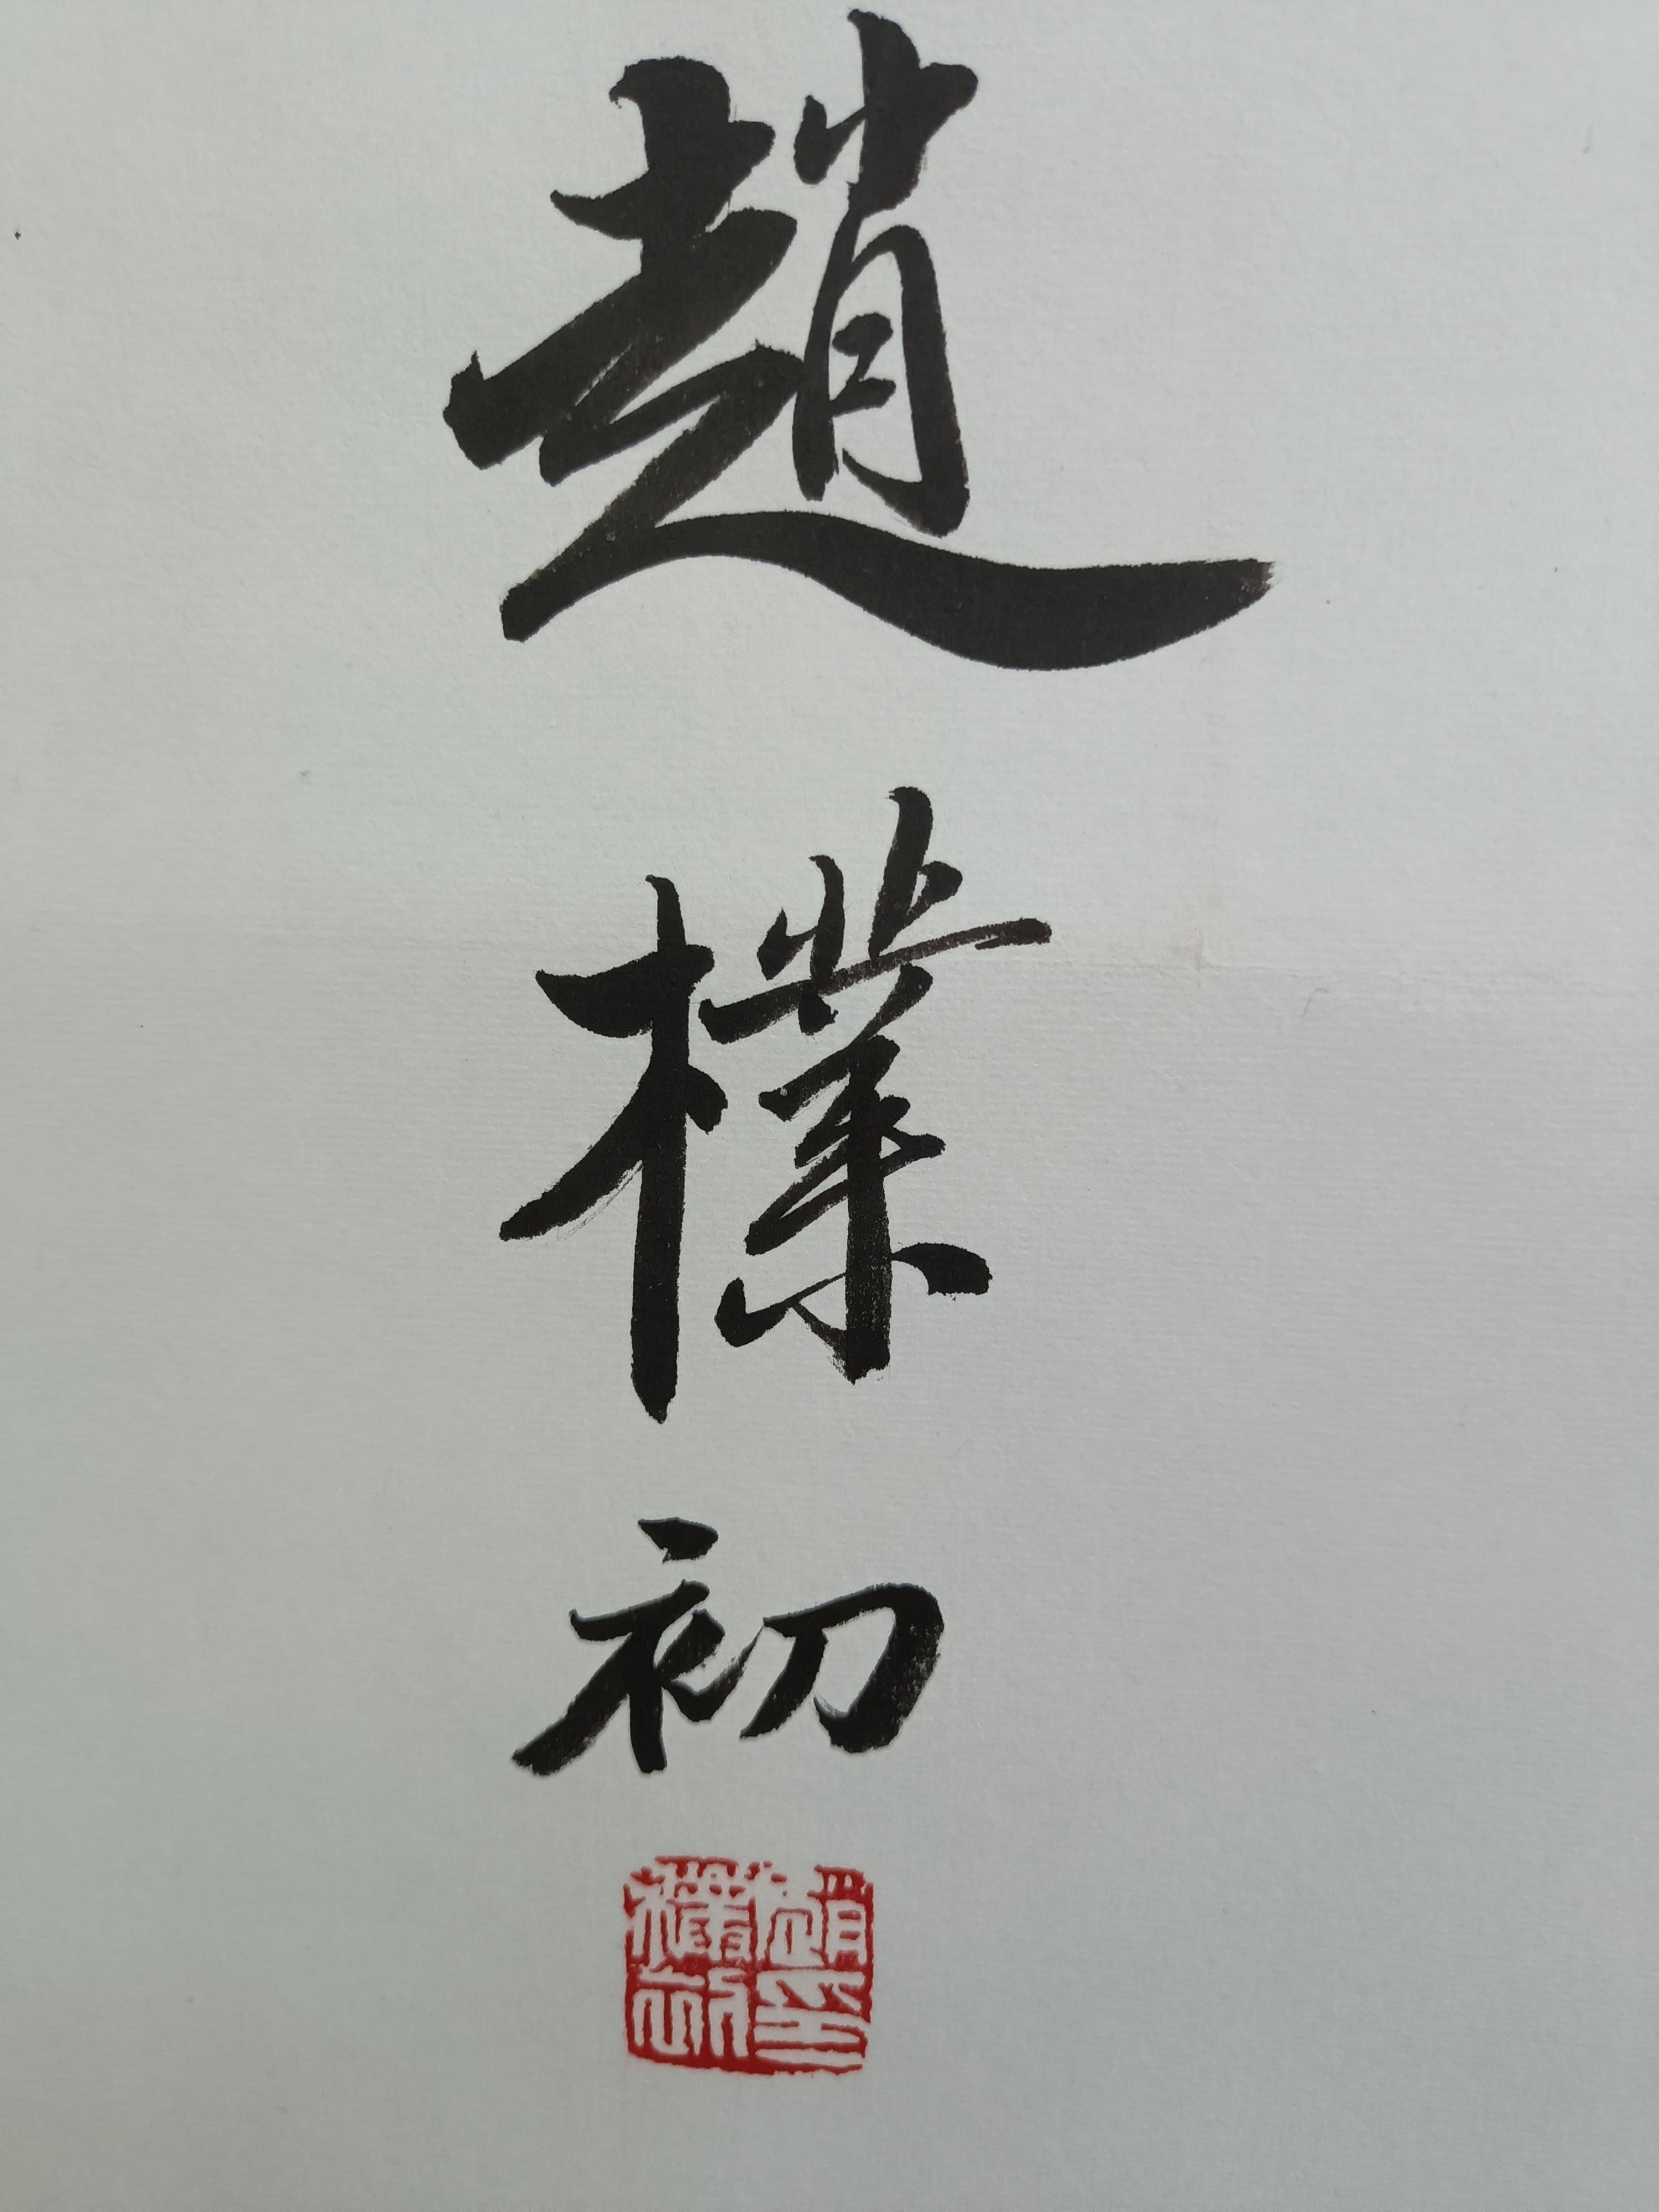 趙樸初
趙樸初印